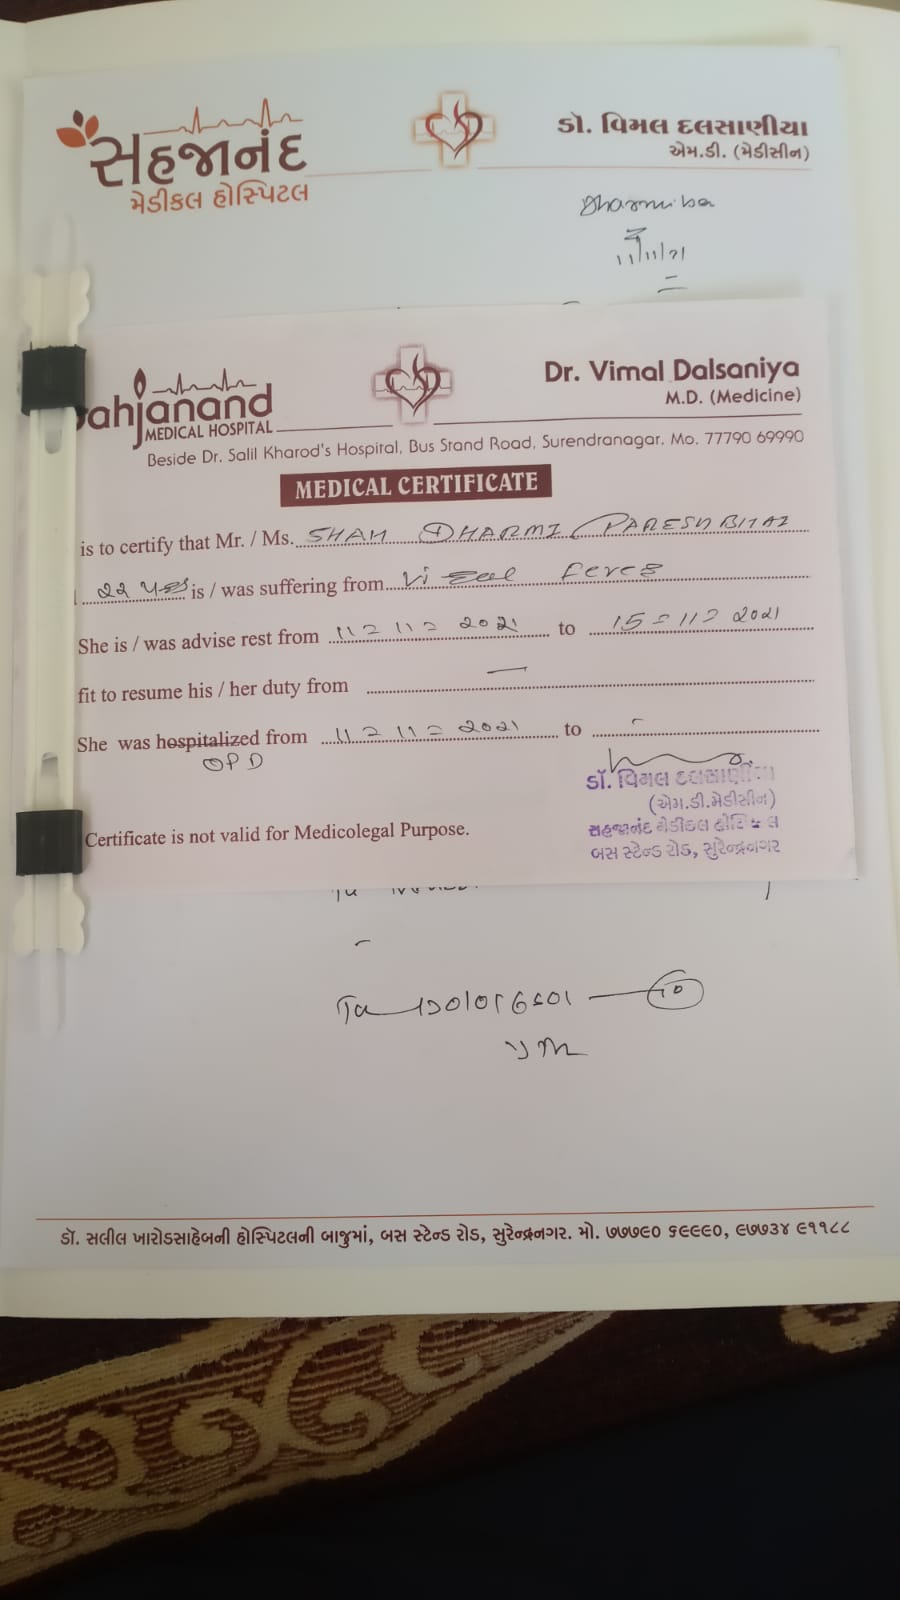 સહજાનંદ
મેડીકલ હોસ્પિટલ
ડૉ. વિમલ દલસાણીયા
એમ.ડી. (મેડીસીન)
11/11/21
ahjanand
MEDICAL HOSPITAL
Dr. Vimal Dalsaniya
M.D. (Medicine)
Beside Dr. Salil Kharod's Hospital, Bus Stand Road, Surendranagar. Mo. 77790 69990
MEDICAL CERTIFICATE
is to certify that Mr. / Ms. SHAH DHARMI PARESHBHAI
22 વર્ષ is / was suffering from Viral fever
She is / was advise rest from 11-11-2021 to 15-11-2021
fit to resume his / her duty from —
She was hospitalized from 11-11-2021 to -
OPD
ડૉ. વિમલ દલસાણીયા
(એમ.ડી.મેડીસીન)
સહજાનંદ મેડીકલ હોસ્પિટલ
બસ સ્ટેન્ડ રોડ, સુરેન્દ્રનગર
Certificate is not valid for Medicolegal Purpose.
10
ડૉ. સલીલ ખારોડસાહેબની હોસ્પિટલની બાજુમાં, બસ સ્ટેન્ડ રોડ, સુરેન્દ્રનગર. મો. ૭૭૭૯૦ ૬૯૯૯૦, ૯૭૭૩૪ ૯૧૧૮૮